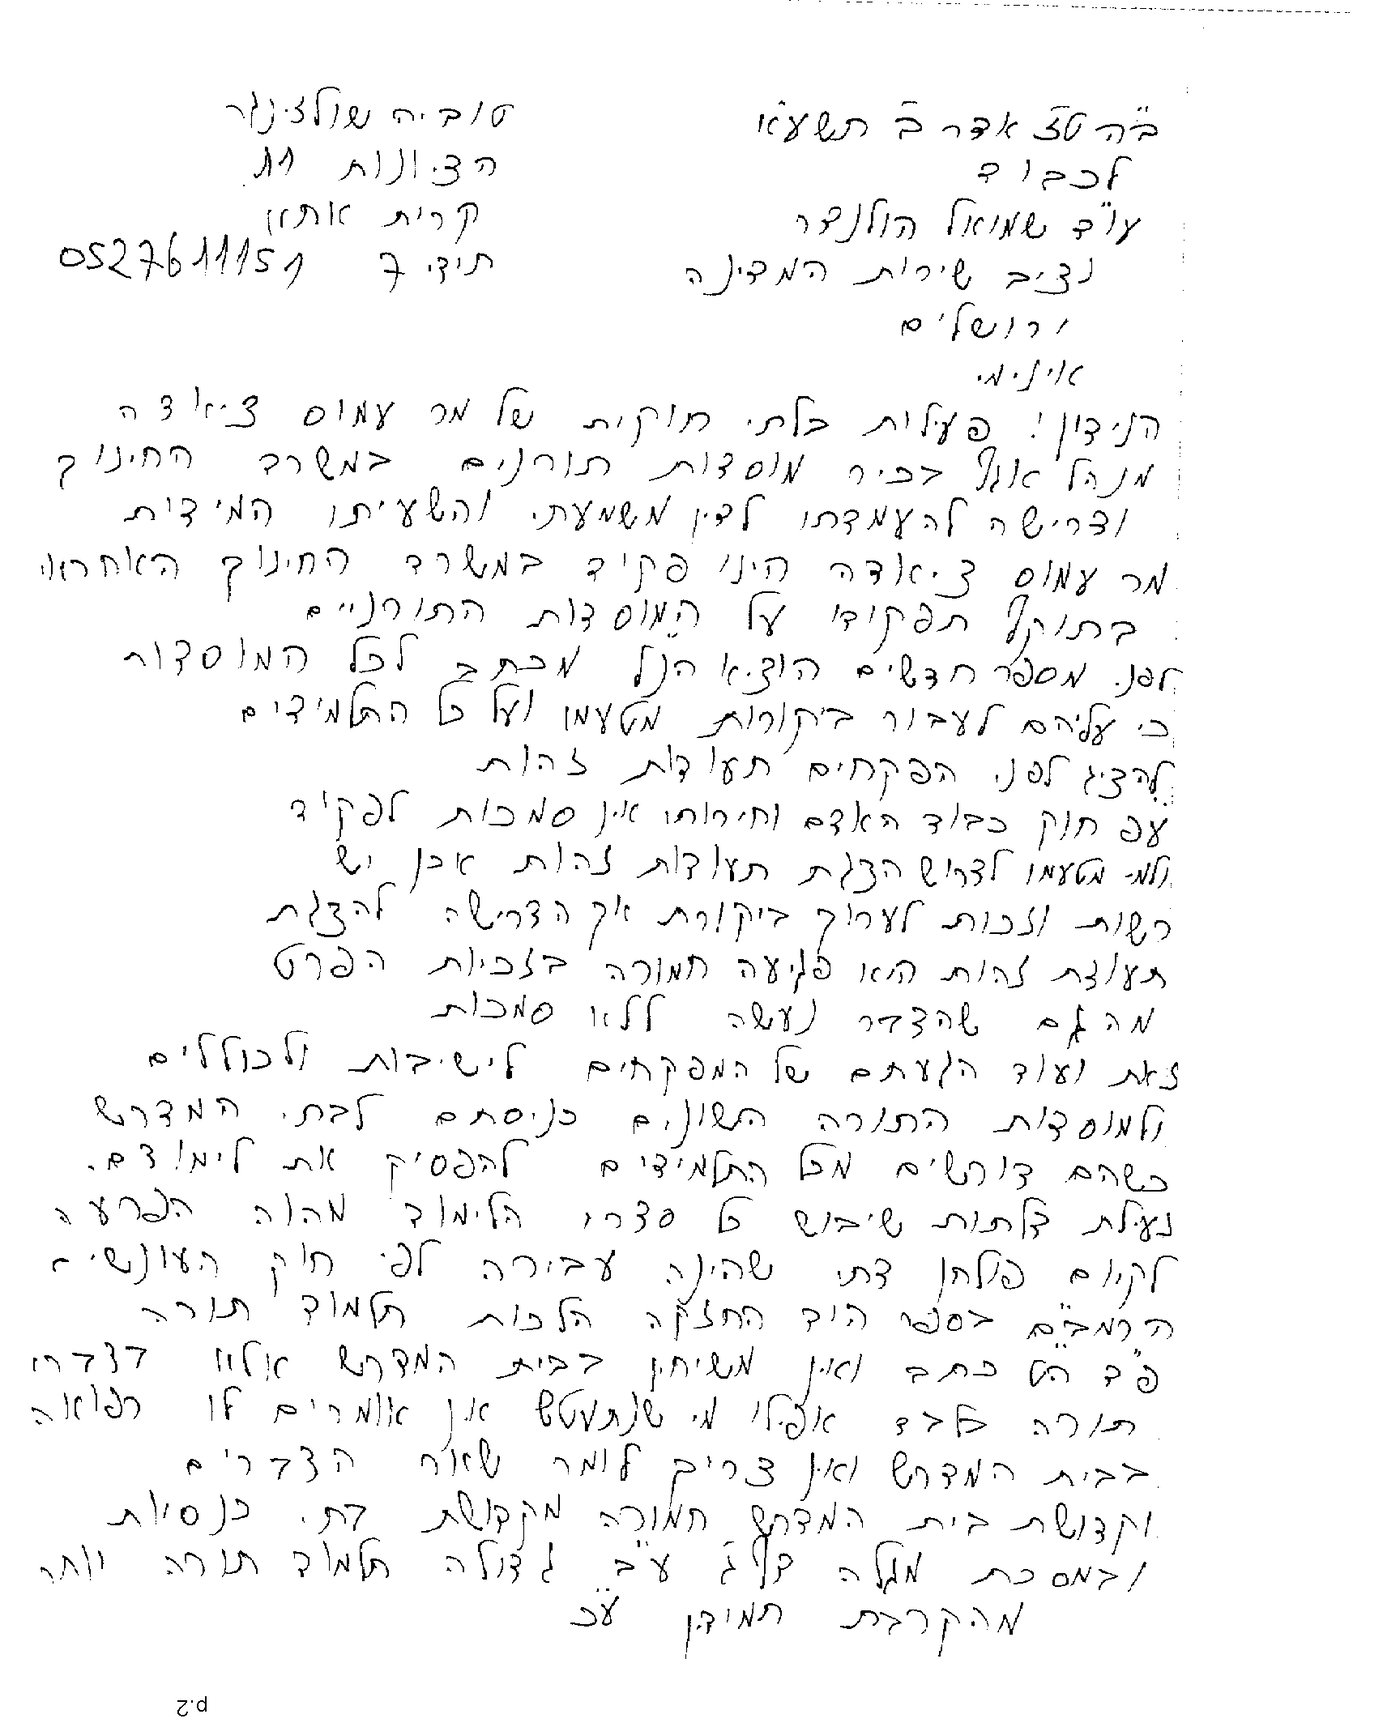 ב"ה ט"ז אדר ב' תשע"א
לכבוד
עו"ד שמואל הולנדר
נציב שירות המדינה
ירושלים
טוביה שולזינגר
הציונות 11
קרית אתא
ת.ד. 7 0527611151
א.נ.
הנידון: פעילות בלתי חוקית של מר עמוס ציאדה
מנהל אגף בכיר מוסדות תורנים במשרד החינוך
ודרישה להעמדתו לדין משמעתי והשעייתו המידית
מר עמוס ציאדה הינו פקיד במשרד החינוך האחראי
בתוקף תפקידו על המוסדות התורניים
לפני מספר חדשים הוציא הנ"ל מכתב לכל המוסדות
כי עליהם לעבור ביקורות מטעמו ועל כל התלמידים
להציג לפני הפקחים תעודות זהות
עפ חוק כבוד האדם וחירותו אין סמכות לפקיד
ולמי מטעמו לדרוש הצגת תעודות זהות אכן יש
רשות וזכות לערוך ביקורת אך הדרישה להצגת
תעודת זהות היא פגיעה חמורה בזכויות הפרט
מה גם שהדבר נעשה ללא סמכות
זאת ועוד הגעתם של המפקחים לישיבות ולכוללים
ולמוסדות התורה השונים כניסתם לבתי המדרש
כשהם דורשים מכל התלמידים להפסיק את לימודם.
נעילת דלתות שיבוש כל סדרי הלימוד מהוה הפרעה
לקיום פולחן דתי שהינה עבירה לפי חוק העונשין
הרמב"ם בספר היד החזקה הלכות תלמוד תורה
פ"ד ה"ט כתב ואין משיחין בבית המדרש אלא בדברי
תורה בלבד אפילו מי שנתעטש אין אומרים לו רפואה
בבית המדרש ואין צריך לומר שאר הדברים
וקדושת בית המדרש חמורה מקדושת בתי כנסיות
ובמסכת מגלה דף ג' ע"ב גדולה תלמוד תורה יותר
מהקרבת תמידין ע"כ
p.2